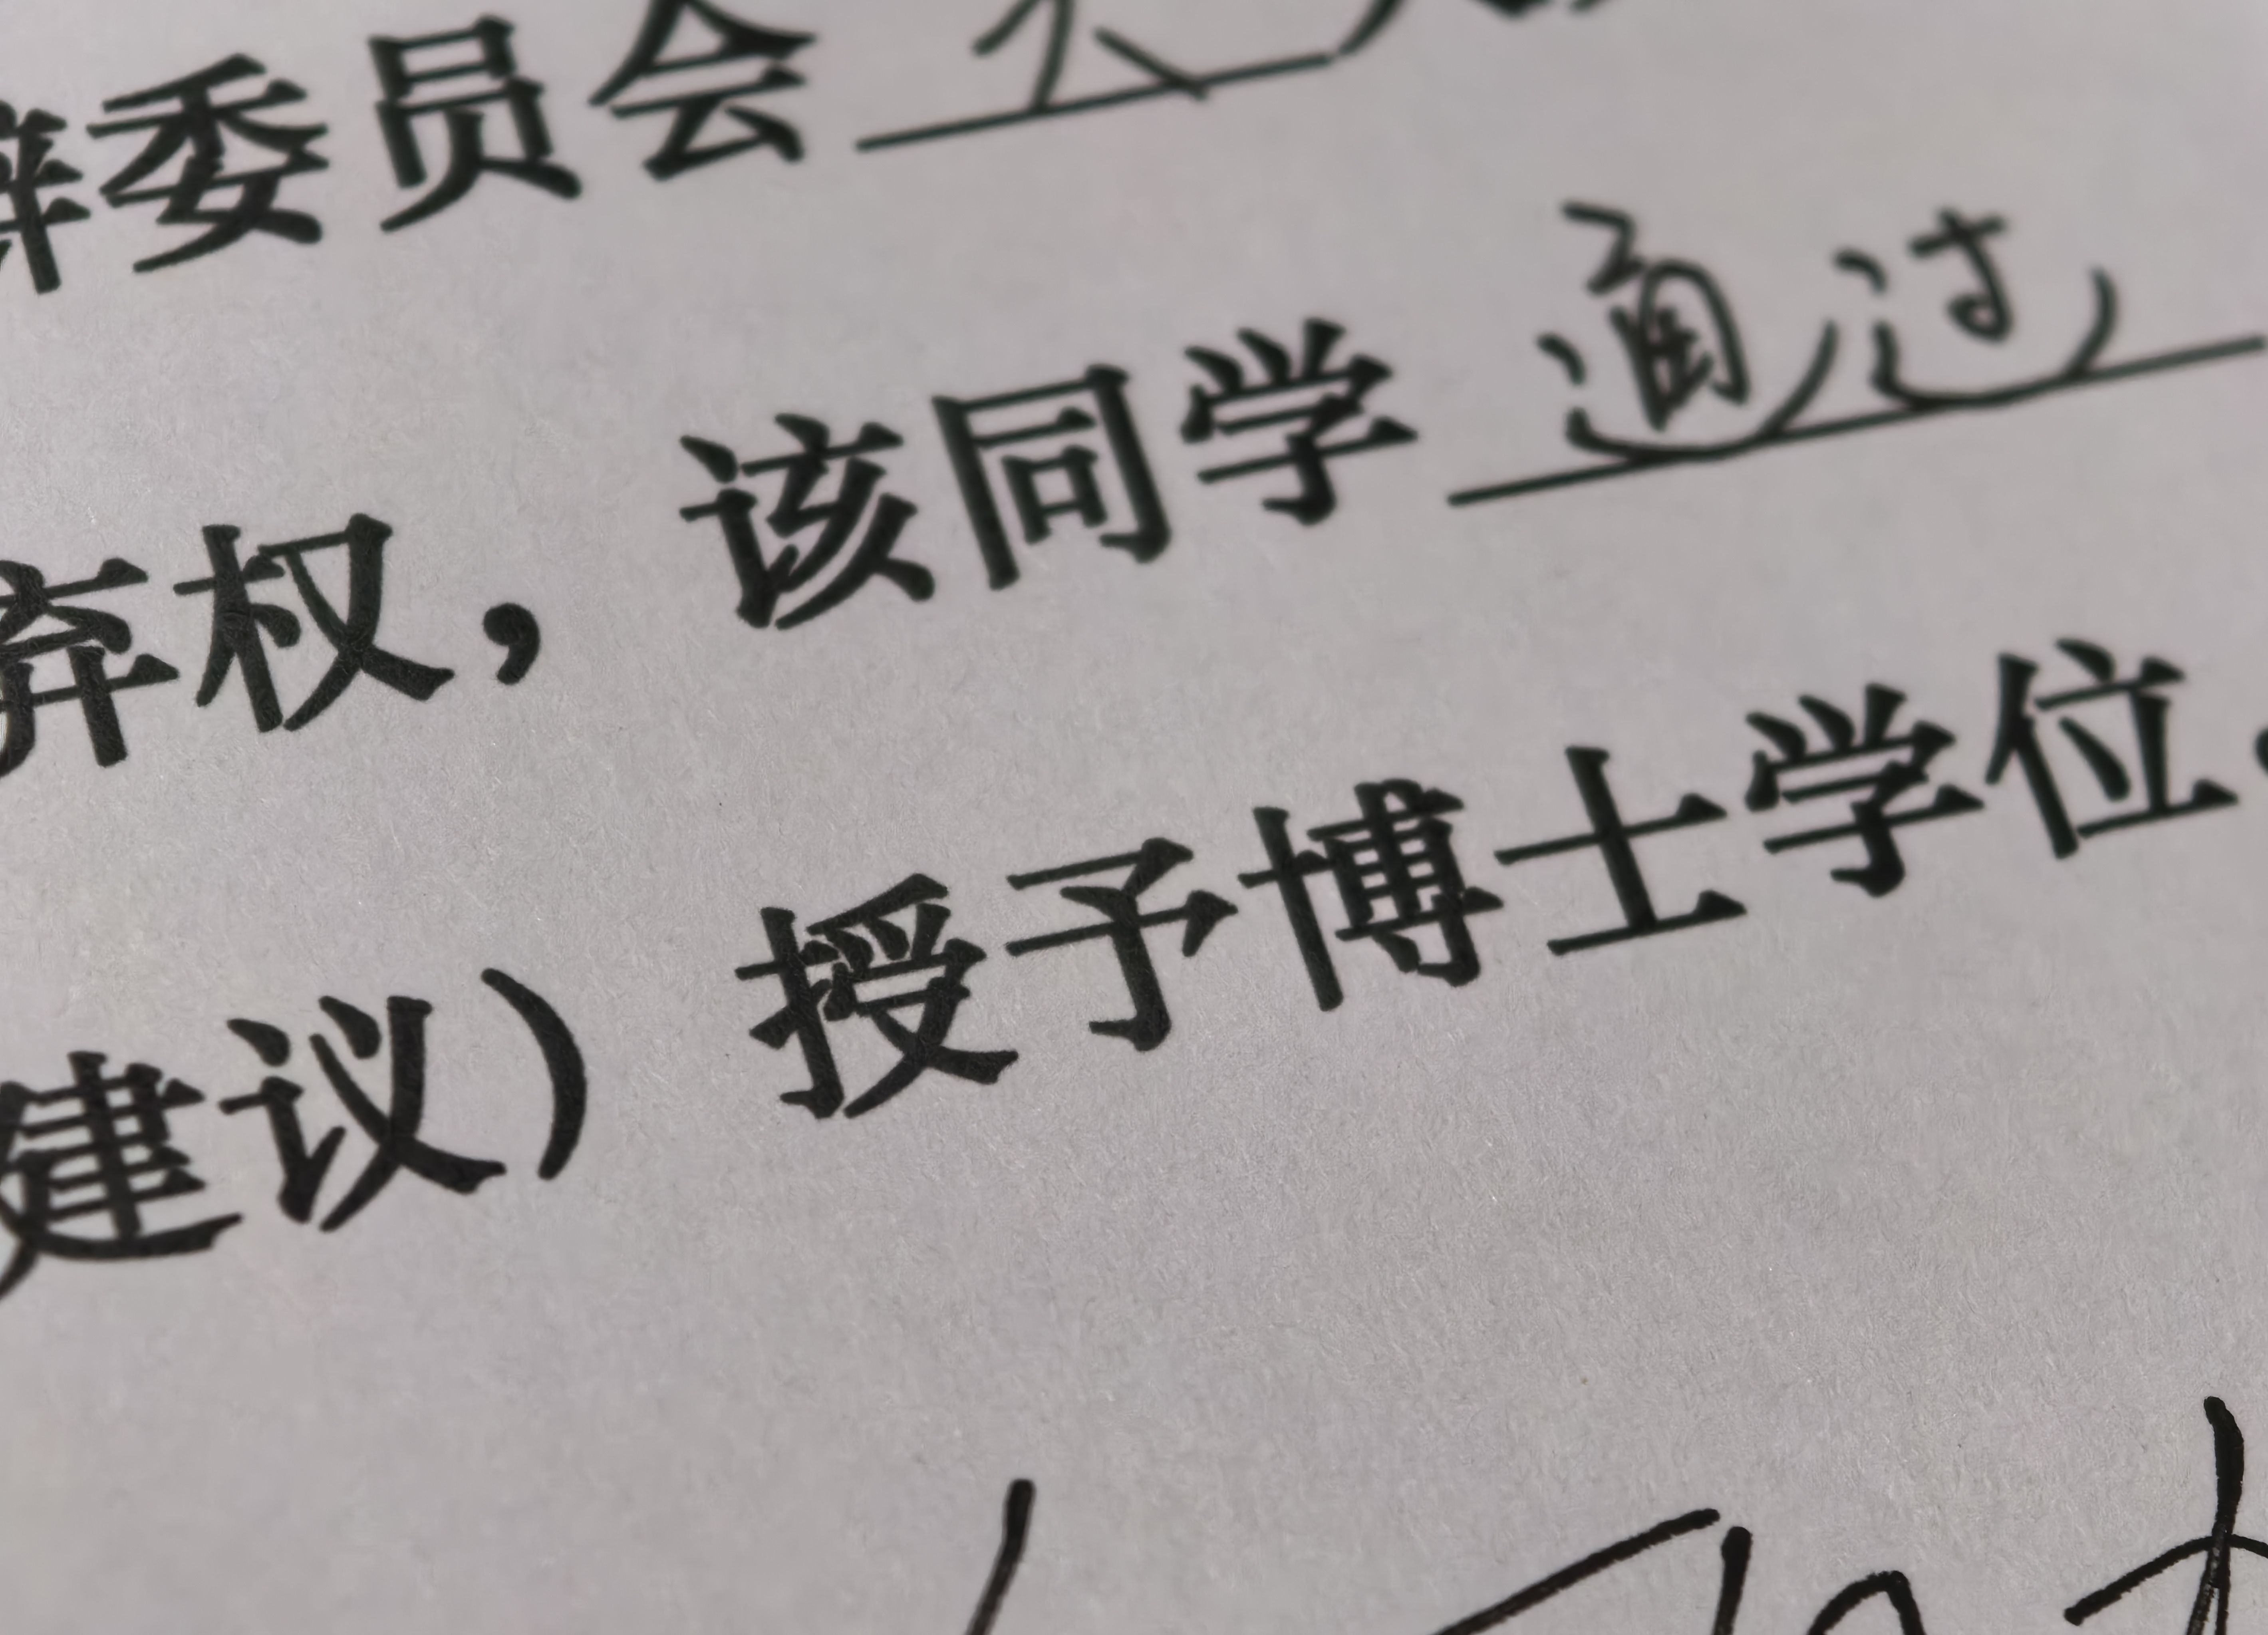 辩委员会
弃权，该同学通过
建议）授予博士学位。